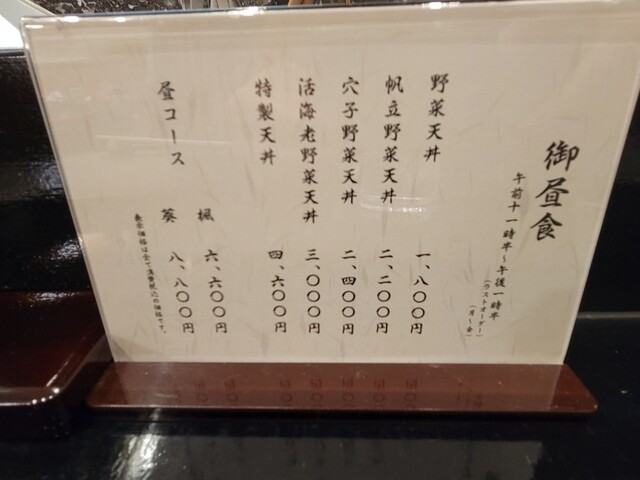 御昼食
午前十一時半~午後一時半
(ラストオーダー)
(月~金)
野菜天丼 一、八〇〇円
帆立野菜天丼 二、二〇〇円
穴子野菜天丼 二、四〇〇円
活海老野菜天丼 三、〇〇〇円
特製天丼 四、六〇〇円
昼コース 楓 六、六〇〇円
葵 八、八〇〇円
表示価格は全て消費税込の価格です。